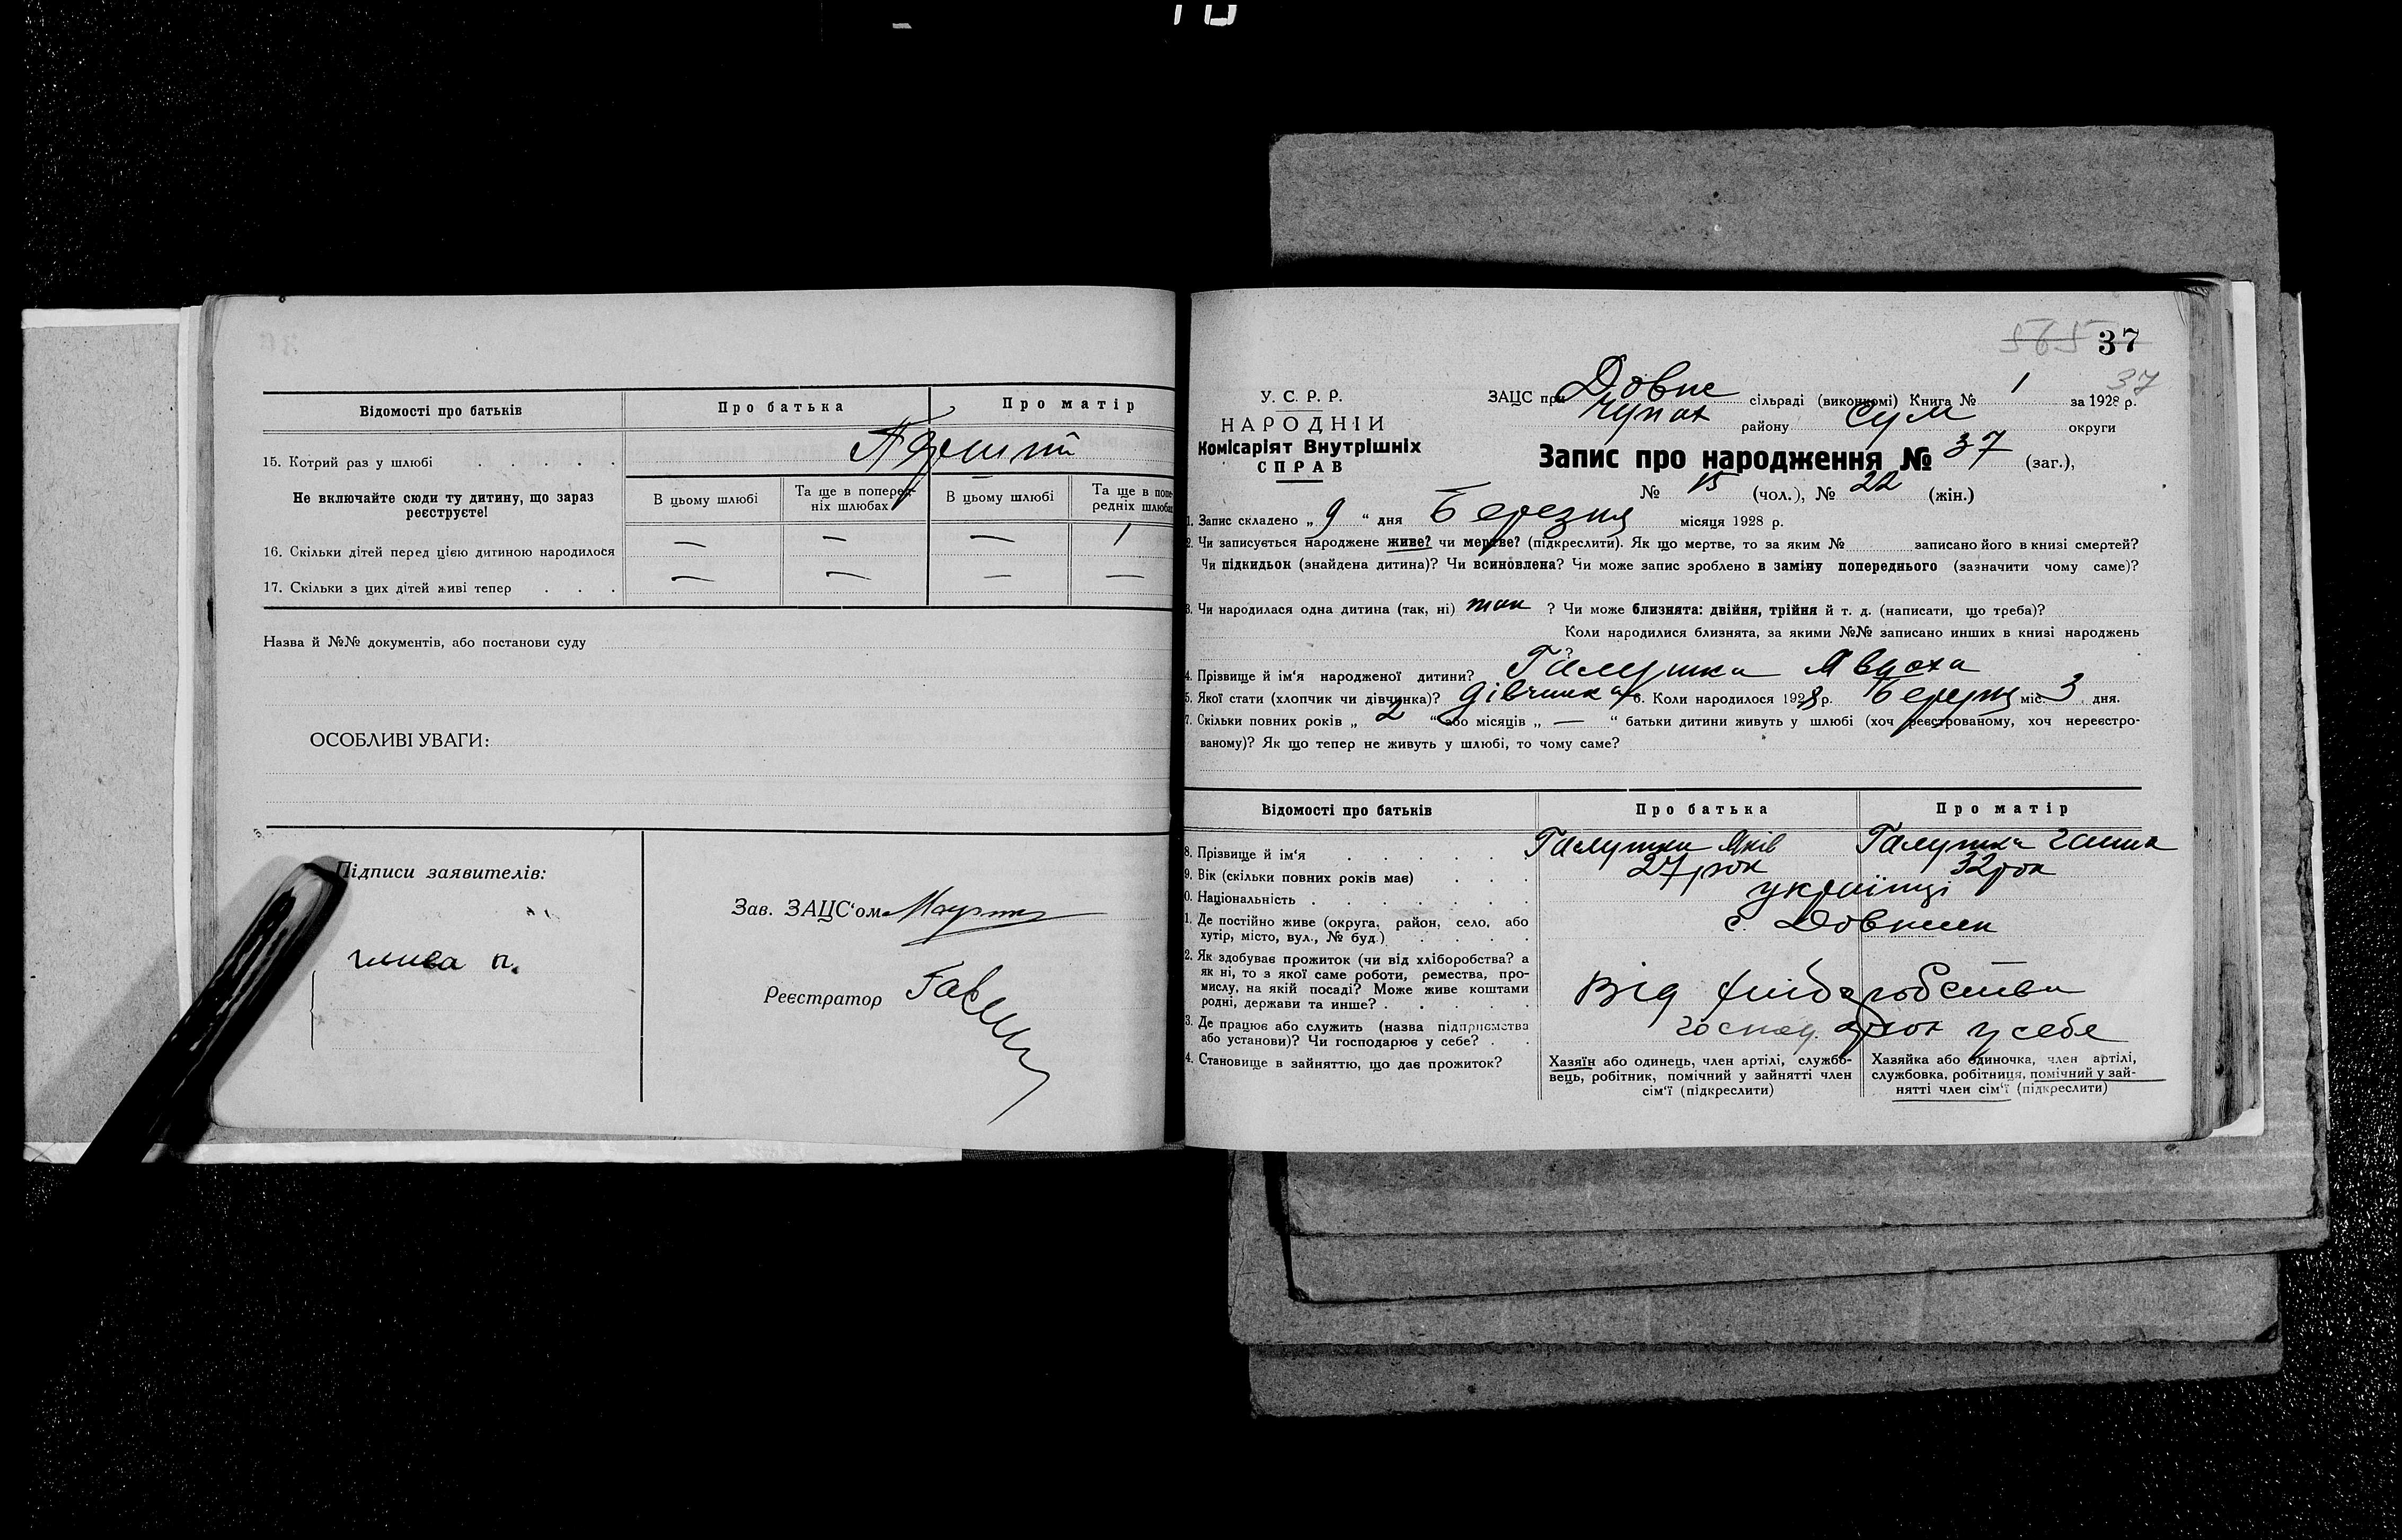 Відомості про батьків Про батька Про матір
15. Котрий раз у шлюбі
Не включайте сюди ту дитину, що зараз реєструєте!
В цьому шлюбі Та ще в поперед-ніх шлюбах В цьому шлюбі Та ще в попе-редніх шлюбах
16. Скільки дітей перед цією дитиною народилося — — — 1
17. Скільки з цих дітей живі тепер — — — —
Назва й №№ документів, або постанови суду
ОСОБЛИВІ УВАГИ:
Підписи заявителів:
Зав. ЗАЦС'ом
Реєстратор
565 37
37
У. С. Р. Р.
НАРОДНІЙ
Комісаріят Внутрішніх
СПРАВ
ЗАЦС при Довже сільраді (виконкомі) Книга № 1 за 1928 р.
Чупах району Сум округи
Запис про народження № 37 (заг.),
№ 15 (чол.), № 22 (жін.)
1. Запис складено „ 9 “ дня Березня місяця 1928 р.
2. Чи записується народжене живе? чи мертве? (підкреслити). Як що мертве, то за яким № записано його в книзі смертей?
Чи підкидьок (знайдена дитина)? Чи всиновлена? Чи може запис зроблено в заміну попереднього (зазначити чому саме)?
3. Чи народилася одна дитина (так, ні) так ? Чи може близнята: двійня, трійня й т. д. (написати, що треба)?
Коли народилися близнята, за якими №№ записано инших в книзі народжень
?
4. Прізвище й ім'я народженої дитини? Галушка Явдоха
5. Якої стати (хлопчик чи дівчинка)? дівчинка 6. Коли народилося 1928 р. Березня міс. 3 дня.
7. Скільки повних років „ 2 “ або місяців „ — “ батьки дитини живуть у шлюбі (хоч реєстрованому, хоч нереєстро-
ваному)? Як що тепер не живуть у шлюбі, то чому саме?
Відомості про батьків Про батька Про матір
8. Прізвище й ім'я Галушка Яків Галушка Ганна
9. Вік (скільки повних років має) 27 рок 32 рок
0. Національність українці
1. Де постійно живе (округа, район, село, або
хутір, місто, вул., № буд.) с. Довжик
2. Як здобуває прожиток (чи від хліборобства? а
як ні, то з якої саме роботи, ремества, про-
мислу, на якій посаді? Може живе коштами
родні, держави та инше? Від хліборобства
3. Де працює або служить (назва підприємства
або установи)? Чи господарює у себе? господ. у себе
4. Становище в зайняттю, що дає прожиток?
Хазяїн або одинець, член артілі, службо-
вець, робітник, помічний у зайнятті член
сім'ї (підкреслити)
Хазяйка або одиночка, член артілі,
службовка, робітниця, помічний у зай-
нятті член сім'ї (підкреслити)